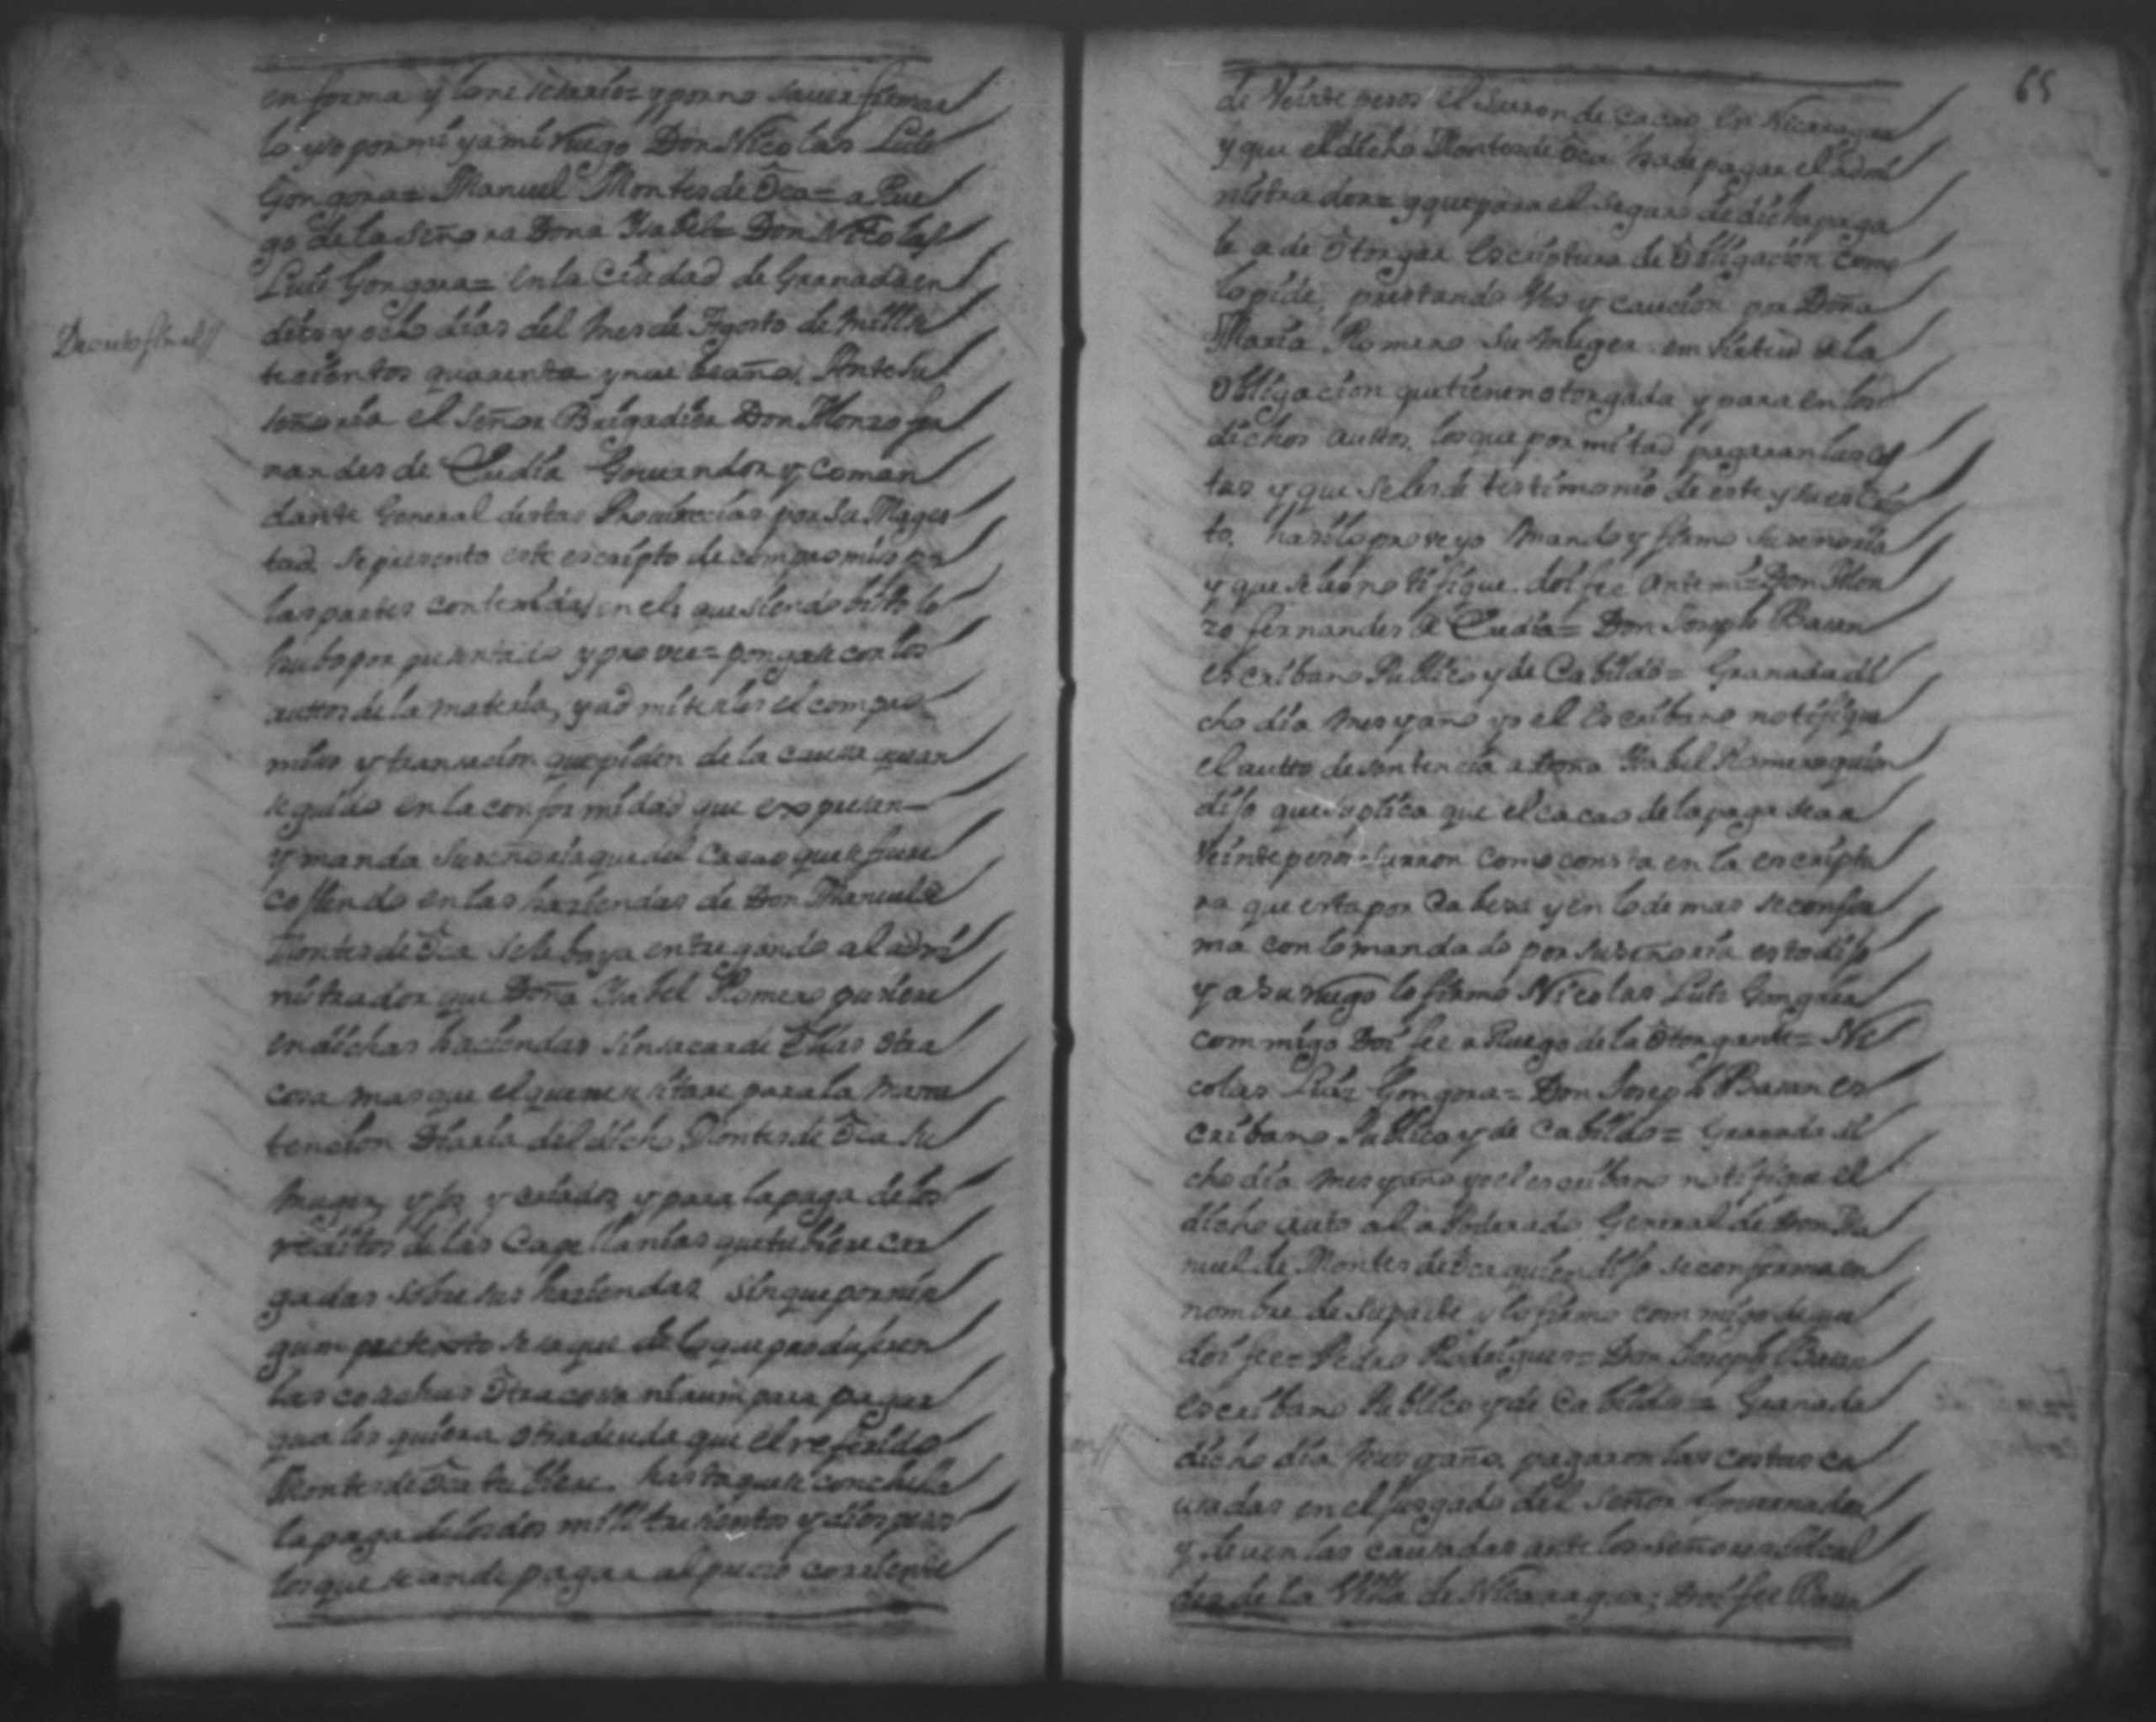 en forma y lo nesesario= y por no saver firmar
lo yso por mi y a mi ruego Don Nicolas Luis
Gongora= Manuel Montes de Oca= a Rue
go de la Señora Dona Ysabel= Don Nicolas
Luis Gongora= en la Ciudad de Granada en
Decreto final
dies y ocho dias del mes de Agosto de mill se
tecientos quarenta y nuebe años. Ante Su
señoria el Señor Brigadier Don Alonso fer
nandes de Eredia Governador y Coman
dante General destas Provincias por Su Mages
tad se presento este escripto de compromiso por
las partes contenidas en el= que siendo bisto lo
hubo por presentado y provee= pongase con los
auttos de la materia, y admiterles el compro
miso y transacion que piden de la causa que an
seguido en la conformidad que expresan
y manda Su señoria que del Cacao que se fuere
cojiendo en las haziendas de Don Manuel de
Montes de Oca se le baya entregando al admi
nistrador que Doña Ysabel Romero pusiere
en dichas haciendas sin sacar de Ellas otra
cosa mas que el que nesesitare para la manu
tencion Diaria del dicho Montes de Oca su
muger, y y criados, y para la paga de los
reditos de las Capellanias que tubiere car
gadas sobre sus haziendas sin que por nin
gun pretexto se saque de lo que produjeren
las cosechas otra cosa ni aun para pagar
qualesquiera otra deuda que el referido
Montes de Oca tubiere hasta que se concluia
la paga de los dos mill tresientos y dies pesos
los que se an de pagar al precio corriente
65
de Veinte pesos el surron de cacao en Nicaragua
y que el dicho Montes de Oca ha de pagar el admi
nistrador= y que para el seguro de dicha paga
le a de otorgar Escriptura de obligacion como
lo pide, prestando vos y caucion por Doña
Maria Romero su muger en birtud de la
obligacion que tienen otorgada y para en los
dichos auttos, los que por mitad pagaran las cos
tas y que se les de testimonio de este y su escrip
to. hasi lo proveyo mando y firmo su señoria
y que se les notifique doi fee ante mi= Don Alon
zo fernandes de Eredia= Don Joseph Basan
escribano Publico y de Cabildo= Granada di
cho dia mes y año yo el Escribano notifique
el autto de sentencia a Doña Ysabel Romero quien
dijo que suplica que el cacao de la paga sea a
Veinte pesos surron como consta en la escriptu
ra que esta por cabesa y en lo demas se confor
ma con lo mandado por su señoria esto dijo
y a su ruego lo firmo Nicolas Luis Gongora
commigo Doi fee a Ruego de la otorgante= Ni
colas Luis Gongora= Don Joseph Basan es
cribano Publico y de Cabildo= Granada di
cho dia mes y año yo el escribano notifique el
dicho auto al apoderado General de Don Ma
nuel de Montes de Oca quien dijo se conforma en
nombre de su parte y lo firmo commigo de que
doi fee= Pedro Rodrigues= Don Joseph Basan
escribano Publico y de Cabildo= Granada
dicho dia mes y año, pagaron las costas ca
usadas en el jusgado del Señor Governador
y deven las causadas ante los señores Alcal
des de la Villa de Nicaragua; Doi fee Basan